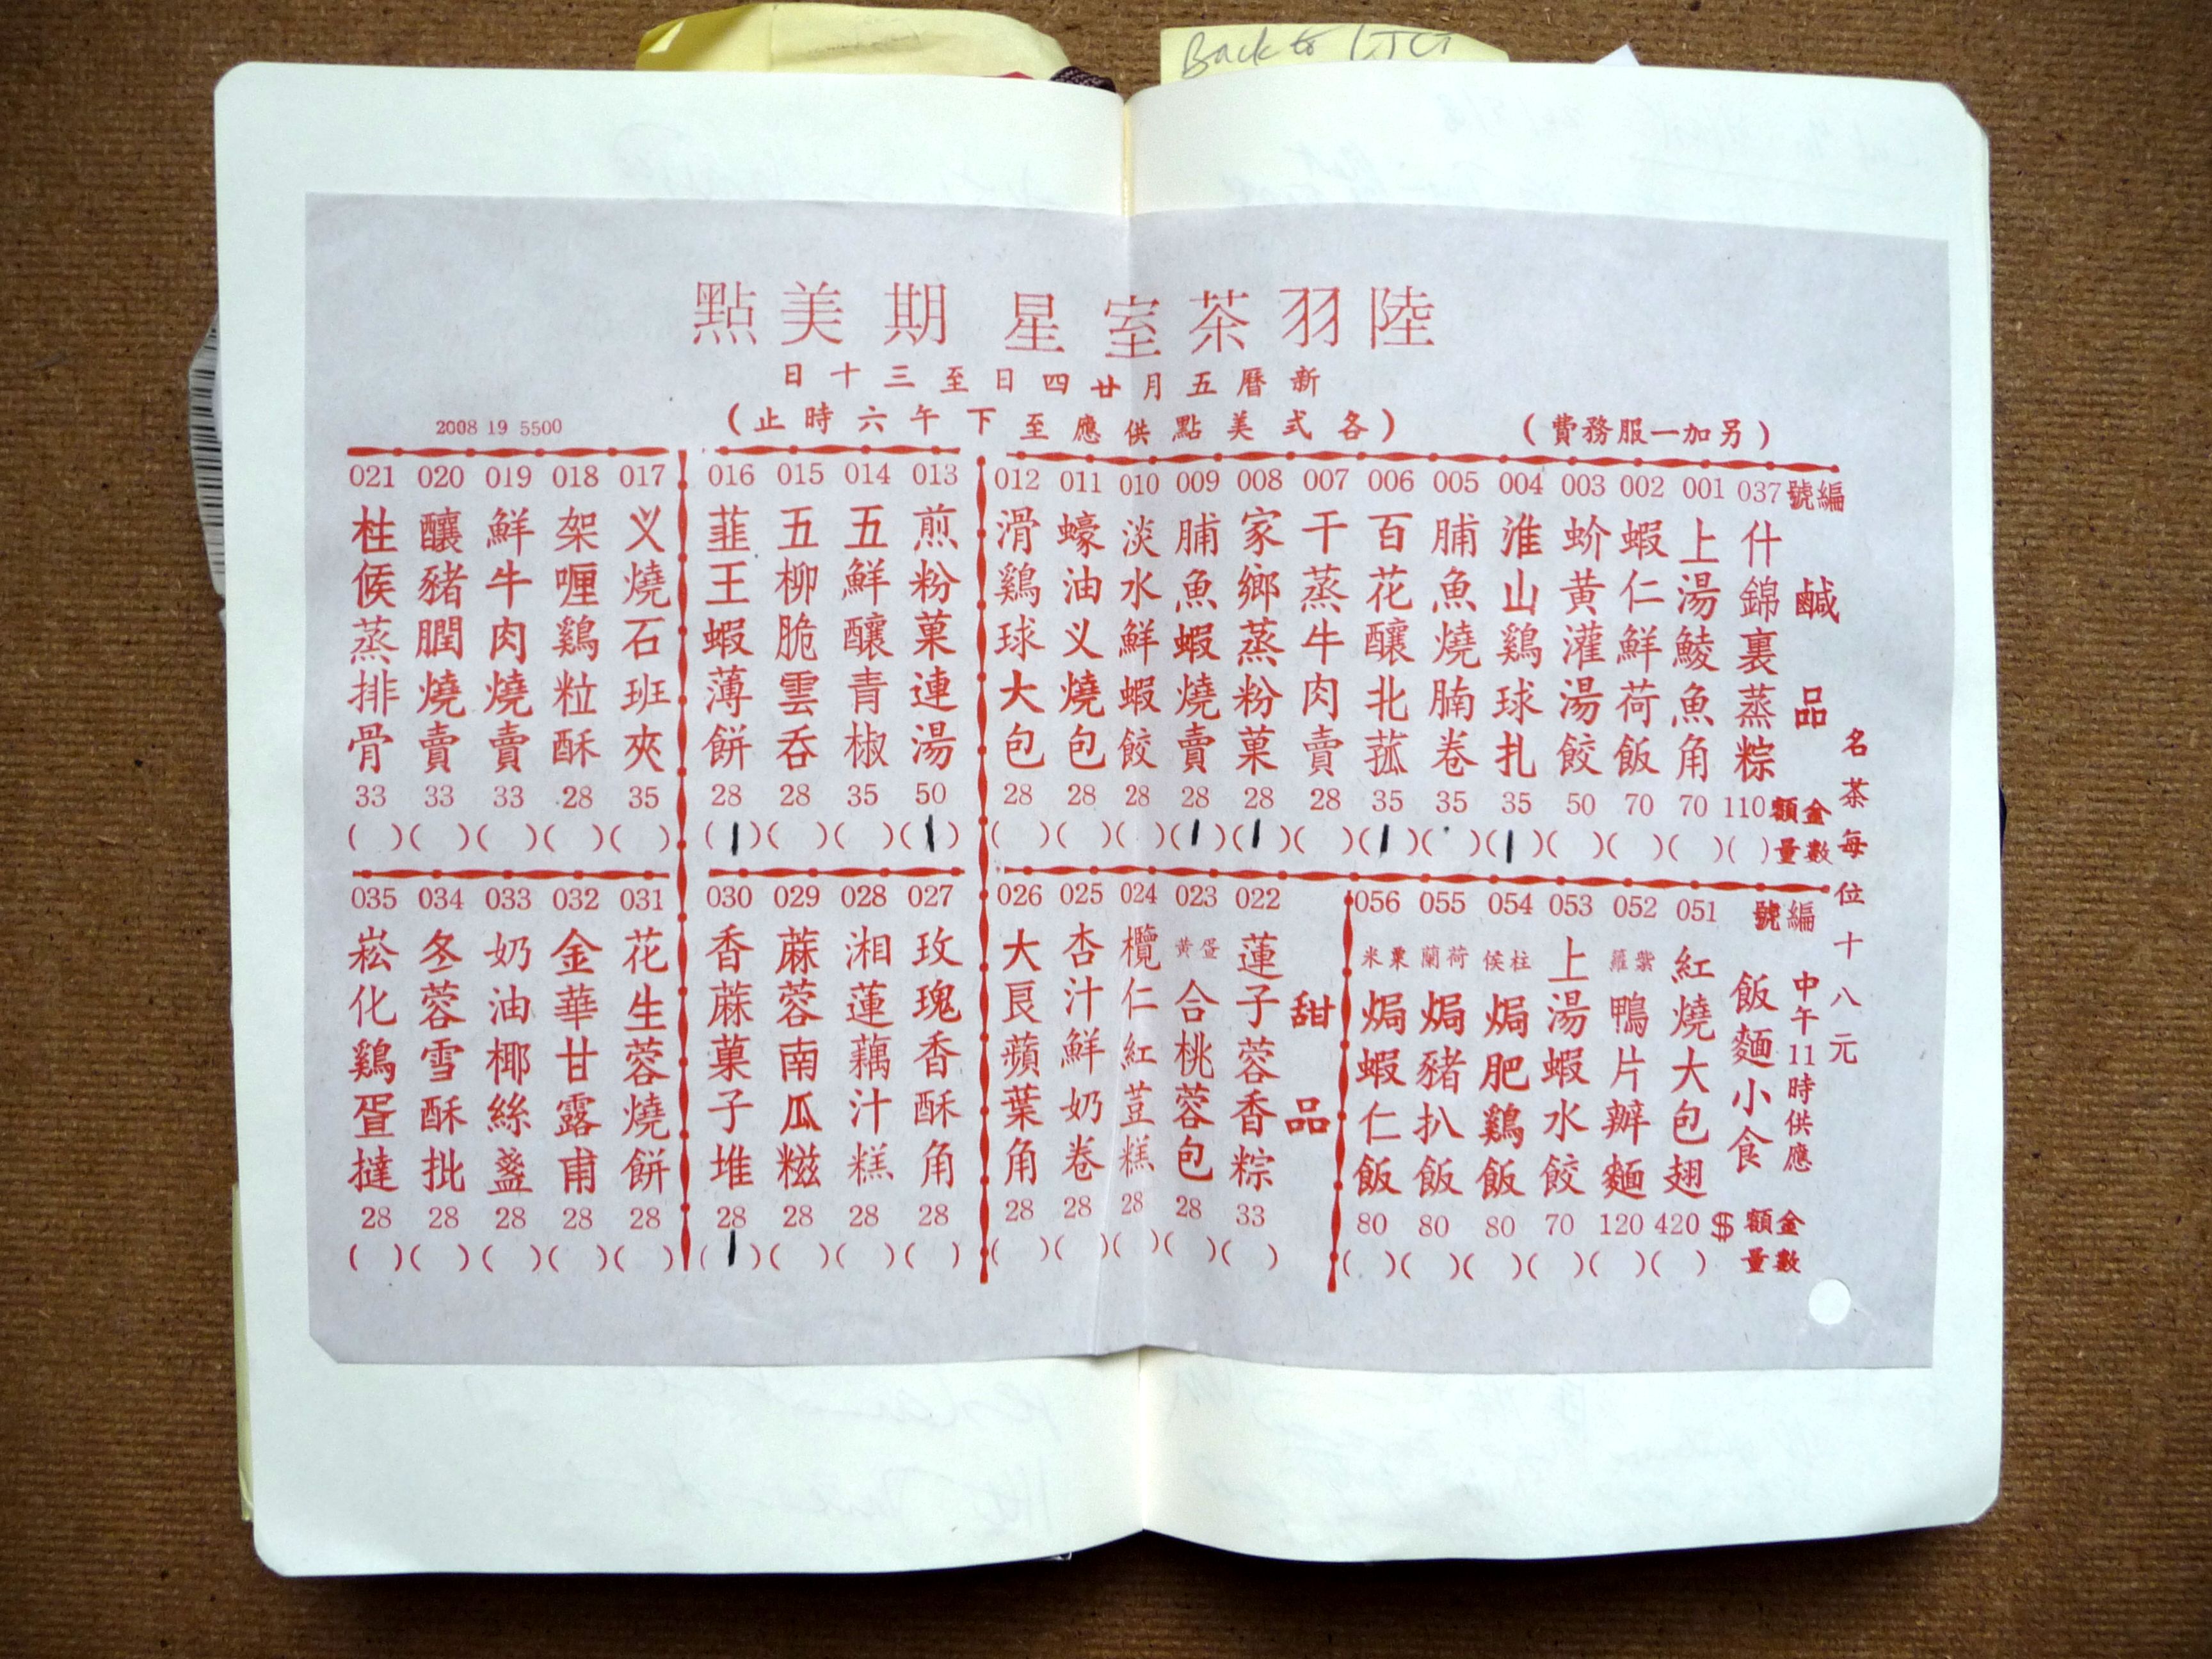 Back to
陸羽茶室 星期美點
新曆五月廿四日至三十日
(各式美點供應至下午六時止)
(另加一服務費)
2008 19 5500
名茶每位十八元
編號 鹹品 金額 數量
037 什錦裹蒸粽 110 ( )
001 上湯鯪魚角 70 ( )
002 蝦仁鮮荷飯 70 ( )
003 蚧黃灌湯餃 50 ( )
004 淮山鷄球扎 35 (1)
005 脯魚燒腩卷 35 ( )
006 百花釀北菰 35 (1)
007 干蒸牛肉賣 28 ( )
008 家鄉蒸粉菓 28 (1)
009 脯魚蝦燒賣 28 (1)
010 淡水鮮蝦餃 28 ( )
011 蠔油义燒包 28 ( )
012 滑鷄球大包 28 ( )
013 煎粉菓連湯 50 (1)
014 五鮮釀青椒 35 ( )
015 五柳脆雲吞 28 ( )
016 韮王蝦薄餅 28 (1)
017 义燒石班夾 35 ( )
018 架喱鷄粒酥 28 ( )
019 鮮牛肉燒賣 33 ( )
020 釀豬膶燒賣 33 ( )
021 柱候蒸排骨 33 ( )
中午11時供應
編號 飯麵小食 金額 $ 數量
051 紅燒大包翅 420 ( )
052 紫羅鴨片辦麵 120 ( )
053 上湯蝦水餃 70 ( )
054 柱侯焗肥鷄飯 80 ( )
055 荷蘭焗豬扒飯 80 ( )
056 粟米焗蝦仁飯 80 ( )
甜品
022 蓮子蓉香粽 33 ( )
023 蛋黃合桃蓉包 28 ( )
024 欖仁紅荳糕 28 ( )
025 杏汁鮮奶卷 28 ( )
026 大良蘋葉角 28 ( )
027 玫瑰香酥角 28 ( )
028 湘蓮藕汁糕 28 ( )
029 蔴蓉南瓜糍 28 ( )
030 香蔴菓子堆 28 (1)
031 花生蓉燒餅 28 ( )
032 金華甘露甫 28 ( )
033 奶油椰絲盞 28 ( )
034 冬蓉雪酥批 28 ( )
035 崧化鷄疍撻 28 ( )